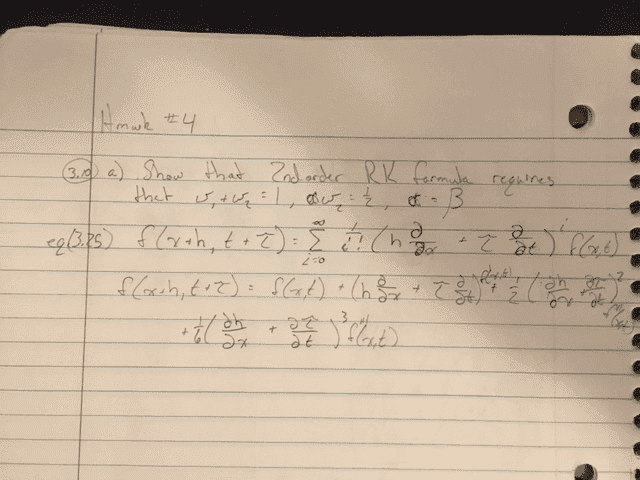 Hmwk #4
(3.10) a) Show that 2nd order RK formula requires
that w₁+w₂=1, αw₂=½, α=β
eq(3.25) f(x+h, t+τ) = ∑_{i=0}^{∞} 1/i! (h ∂/∂x + τ ∂/∂t)^i f(x,t)
f(x+h, t+τ) = f(x,t) + (h ∂/∂x + τ ∂/∂t) f'(x,t) + ½ (∂h/∂x + ∂τ/∂t)² f''(x,t)
+ 1/6 (∂h/∂x + ∂τ/∂t)³ f'''(x,t)